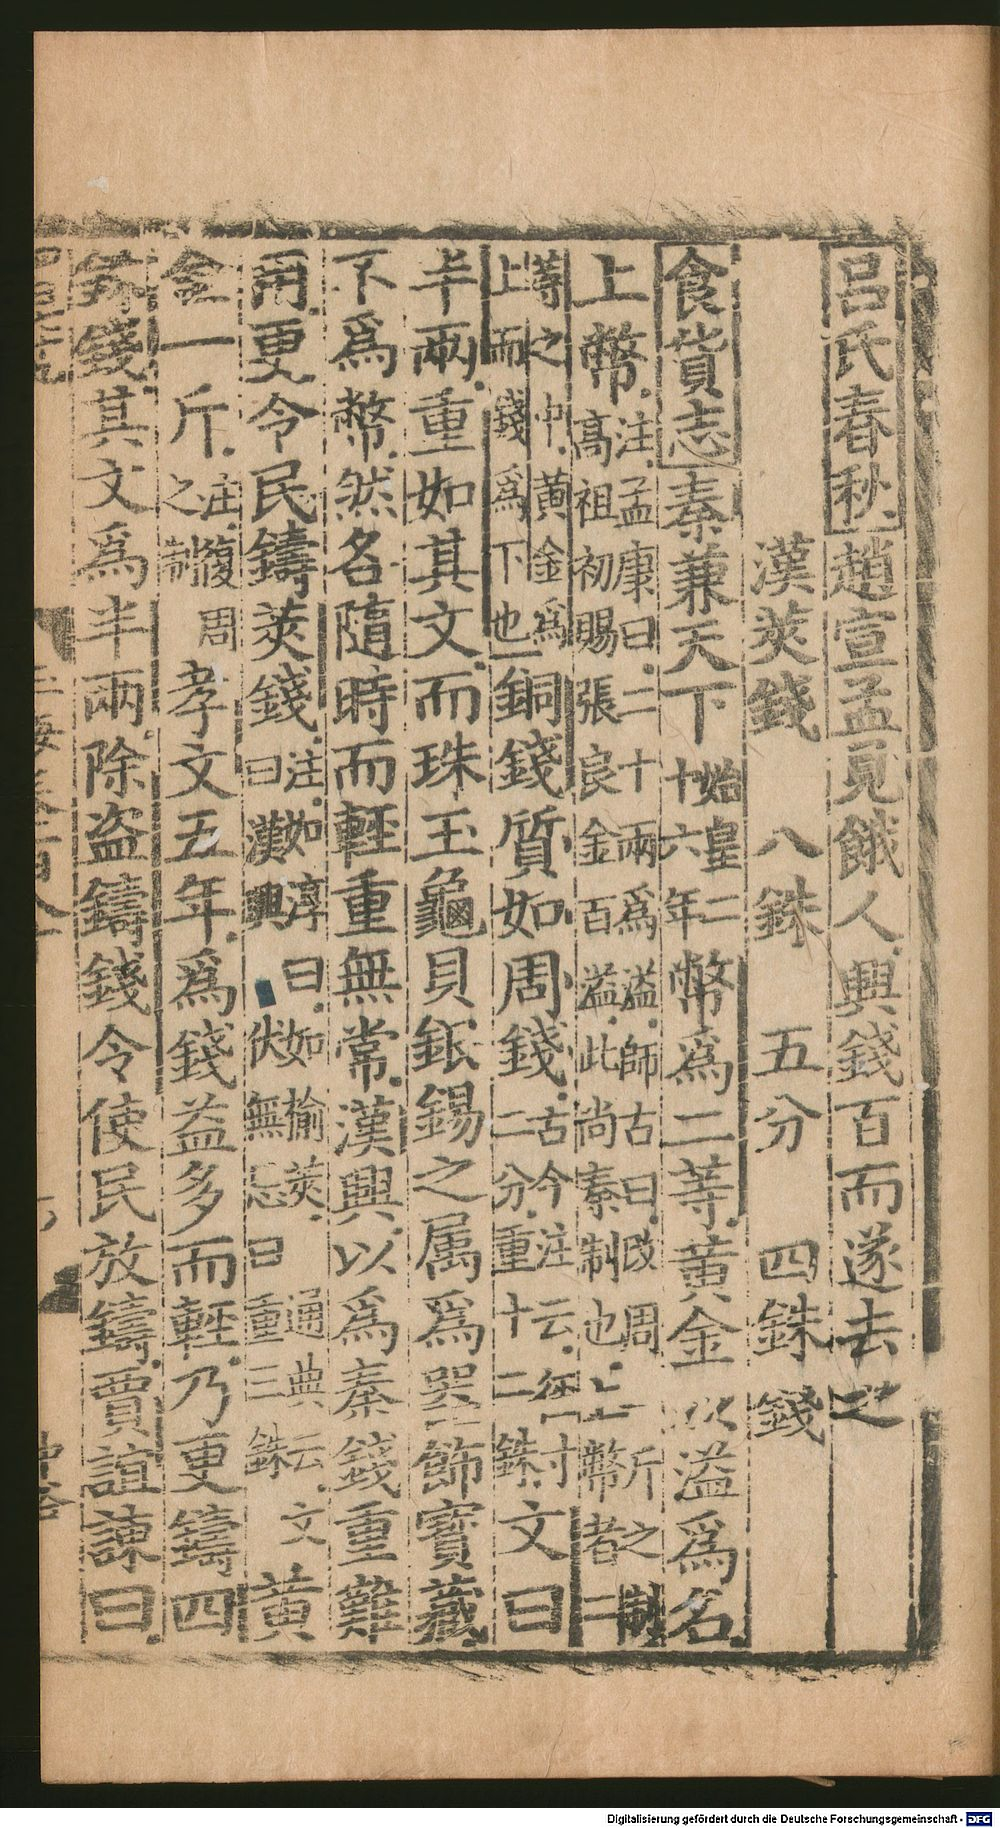 呂氏春秋趙宣孟見餓人興錢百而遂去之
漢莢錢　八銖　五分　四銖錢
食貨志秦兼天下始皇二十六年幣爲二等黃金以溢爲名
上幣注孟康曰二十兩爲溢師古曰改周斤之制高祖初賜張良金百溢此尚秦制也上幣者二
等之中黃金爲上而錢爲下也銅錢質如周錢古今注云年寸二分重十二銖文曰
半兩重如其文而珠玉龜貝銀錫之属爲噐飾寳藏
不爲幣然各隨時而輕重無常漢興以爲秦錢重難
用更令民鑄莢錢注如淳曰如榆莢通典云文曰漢興伏無忌曰重三銖黃
金一斤注復周之制孝文五年爲錢益多而輕乃更鑄四
銖錢其文爲半兩除盗鑄錢令使民放鑄賈誼諫曰
Digitalisierung gefördert durch die Deutsche Forschungsgemeinschaft - DFG